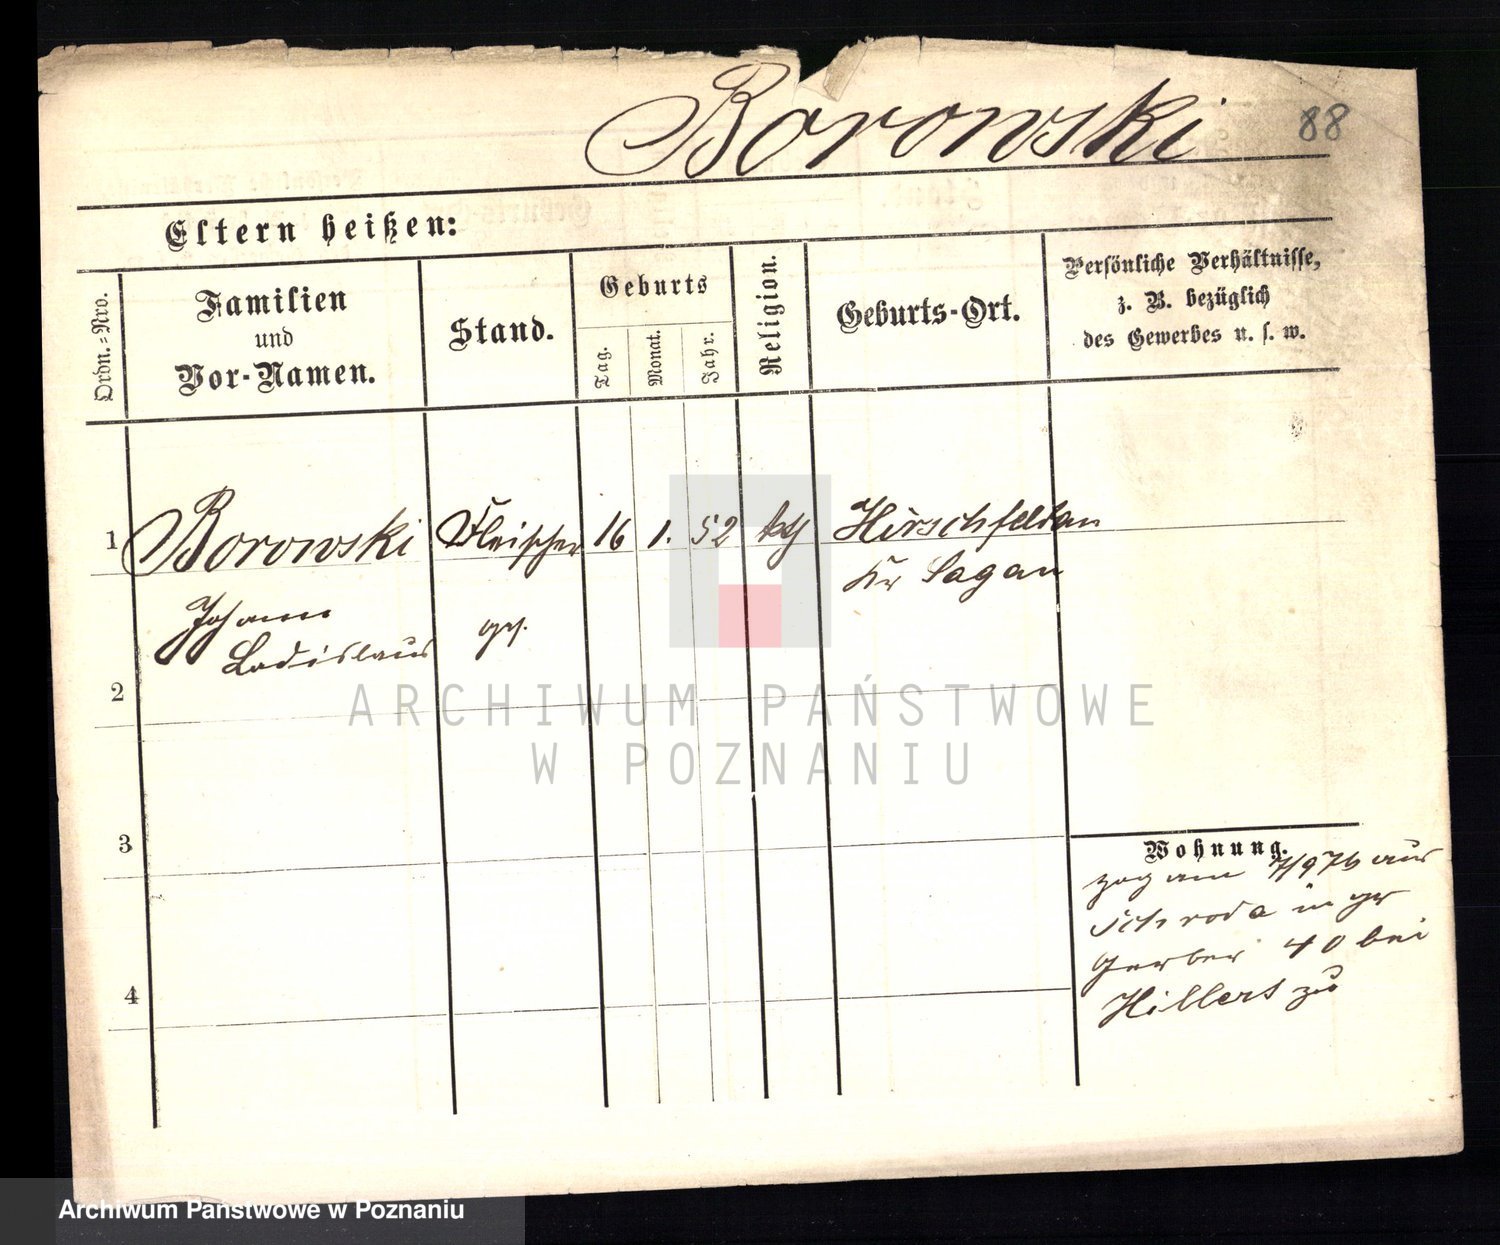 Borowski 88
Eltern heißen:
Ordn.-Nro.
Familien
und
Vor-Namen.
Stand.
Geburts
Tag.
Monat.
Jahr.
Religion.
Geburts-Ort.
Persönliche Verhältnisse,
z. B. bezüglich
des Gewerbes u. s. w.
1 Borowski Fleischer 16 1. 52 kth Hirschfeldau
Kr Sagan
Johann
Ladislaus
2
3
4
Wohnung.
zog am 7/9 76 aus
Schroda in gr
Gerber 40 bei
Hillert zu
ARCHIWUM PAŃSTWOWE
W POZNANIU
Archiwum Państwowe w Poznaniu